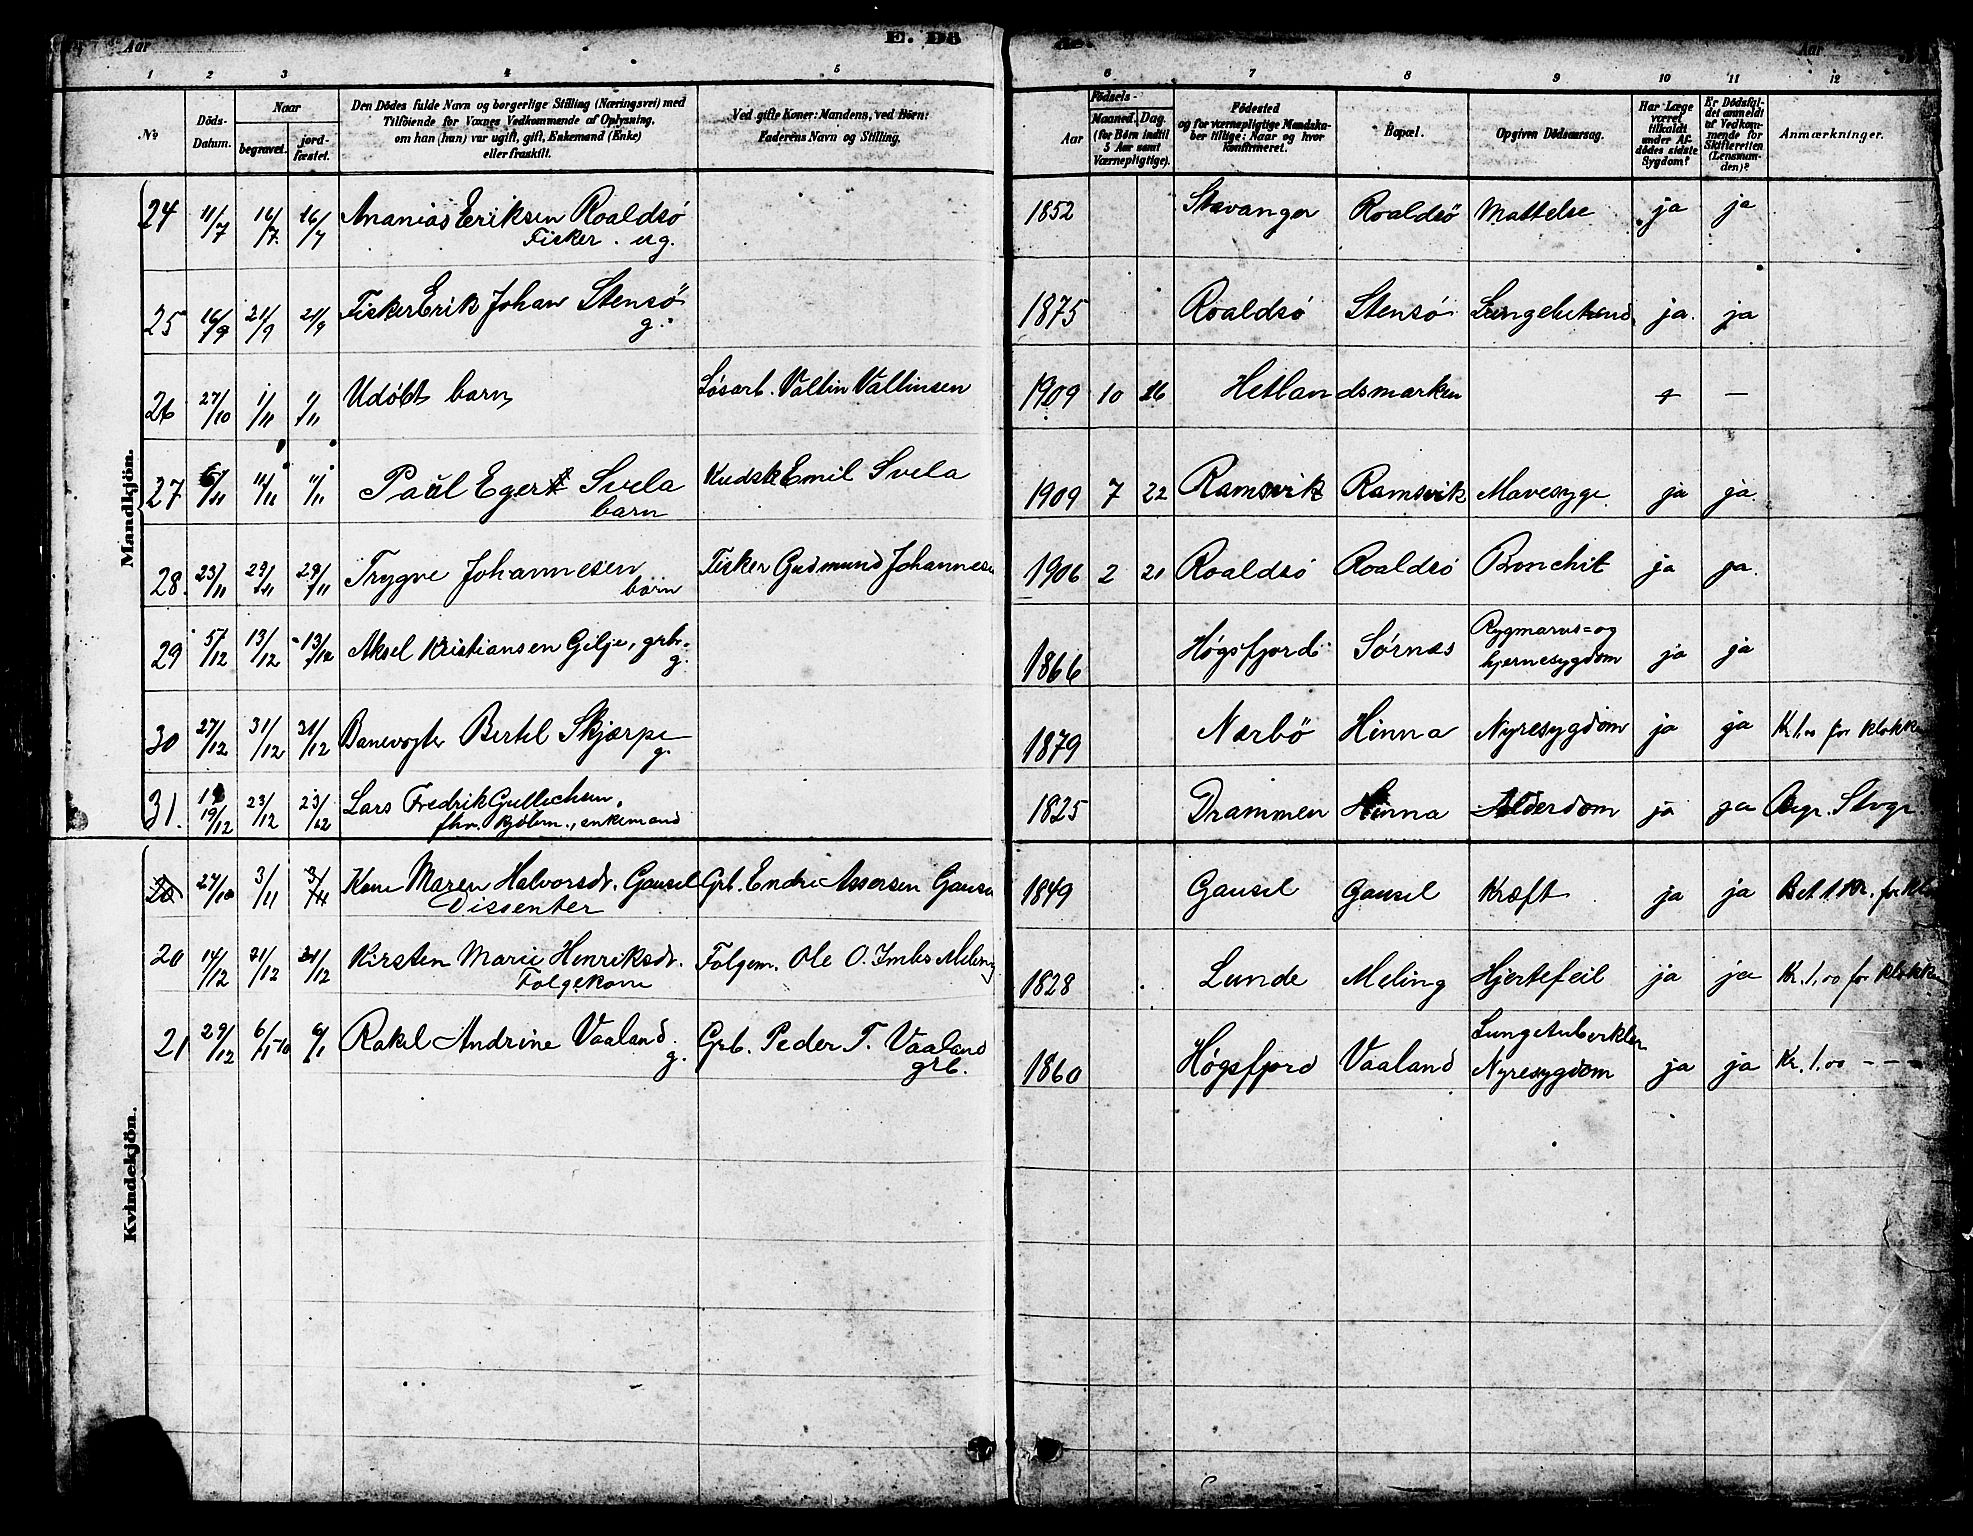 Aar E. Dö de. Aar
1 2 3 4 5 6 7 8 9 10 11 12
No Döds-Datum. Naar begravet. jord-fæstet. Den Dödes fulde Navn og borgerlige Stilling (Næringsvei) med Tilföiende for Voxnes Vedkommende af Oplysning, om han (hun) var ugift, gift, Enkemand (Enke) eller fraskilt. Ved gifte Koner: Mandens, ved Börn: Faderens Navn og Stilling. Födsels- Aar Maaned. Dag. (for Börn indtil 5 Aar samt Værnepligtige). Födested og for værnepligtige Mandska-ber tillige: Naar og hvor konfirmeret. Bopæl. Opgiven Dödsaarsag. Har Læge været tilkaldt under Af-dödes sidste Sygdom? Er Dödsfal-det anmeldt af Vedkom-mende for Skifteretten (Lensman-den)? Anmærkninger.
Mandkjön.
24 11/7 16/7 16/7 Ananias Eriksen Roaldsö 1852 Stavanger Roaldsö Mattelse ja ja
Fisker. ug.
25 16/9 21/9 21/9 Fisker Erik Johan Stensö 1875 Roaldsö Stensö ja. ja
g.
26 27/10 1/11 1/11 Udöbt barn Løsarb. Valtin Valtinsen 1909 10 Hetlandsmarken + —
27 11/11 11/11 Paul Egert Svela Kudsk Emil Svela 1909 7 22 Ramsvik Ramsvik Mavesyge ja ja.
barn
28. 23/11 29/11 29/11 Trygve Johannesen Fisker Gudmund Johannesen 1906 2 21 Roaldsö Roaldsö Bronchit ja ja.
barn
29 5/12 13/12 13/12 Aksel Kristiansen Gilje, grbr. 1866 Høgsfjord Sørnes Rygmarvs= og
g. hjernesygdom ja ja
30 27/12 31/12 31/12 Banevogter Bertel Skjærpe 1879 Nærbö Hinna Nyresygdom ja ja Kr. 1.00 for klokk
g.
31. 19/12 23/12 23/12 Lars Fredrik Gullichsen. 1825 Drammen Hinna Alderdom ja ja Begr. Stvgr.
fhv. kjöbm., enkemand
Kvindekjön.
20 27/10 3/11 3/11 Kone Maren Halvorsdr. Gausel Grb. Endre Assersen Gausel 1849 Gausel Gausel Kræft ja ja Bet. 1 Kr. for kl
Dissenter
20 14/12 21/12 21/12 Kirsten Marie Henriksdr. Folgem. Ole O. Meling 1828 Lunde Meling Hjertefeil ja ja Kr. 1,00 for klokk
Folgekone
21 29/12 6/1-10 6/1 Rakel Andrine Vaaland. Grb. Peder T. Vaaland 1860 Høgsfjord Vaaland Lungetuberkler
g. grb. Nyresygdom ja ja Kr. 1.00 - - -